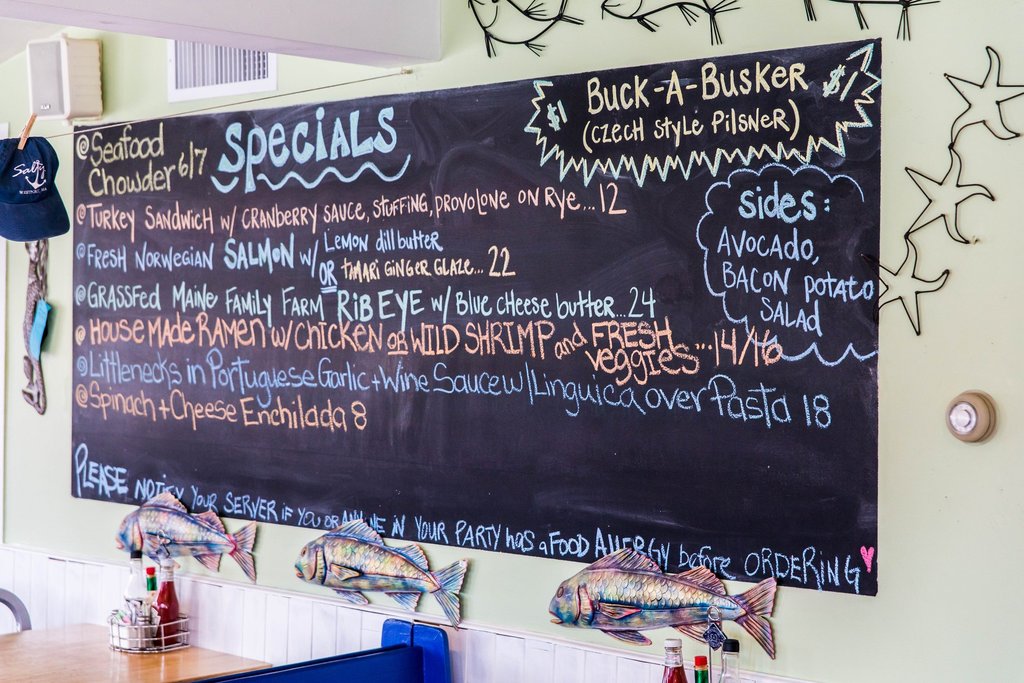 $1 Buck-A-Busker $1
(Czech Style Pilsner)
Specials
@ Seafood
Chowder 6/7
@ Turkey Sandwich w/ Cranberry Sauce, Stuffing, Provolone on Rye... 12
@ Fresh Norwegian Salmon w/ Lemon dill butter
OR Tamari Ginger Glaze... 22
@ Grassfed Maine Family Farm Rib Eye w/ Blue Cheese butter... 24
@ House Made Ramen w/ Chicken or Wild Shrimp and Fresh
veggies... 14/16
@ Littlenecks in Portuguese Garlic + Wine Sauce w/ Linguica over Pasta 18
@ Spinach + Cheese Enchilada 8
Sides:
Avocado,
Bacon Potato
Salad
Please notify your server if you or anyone in your party has a food allergy before ordering
Salty